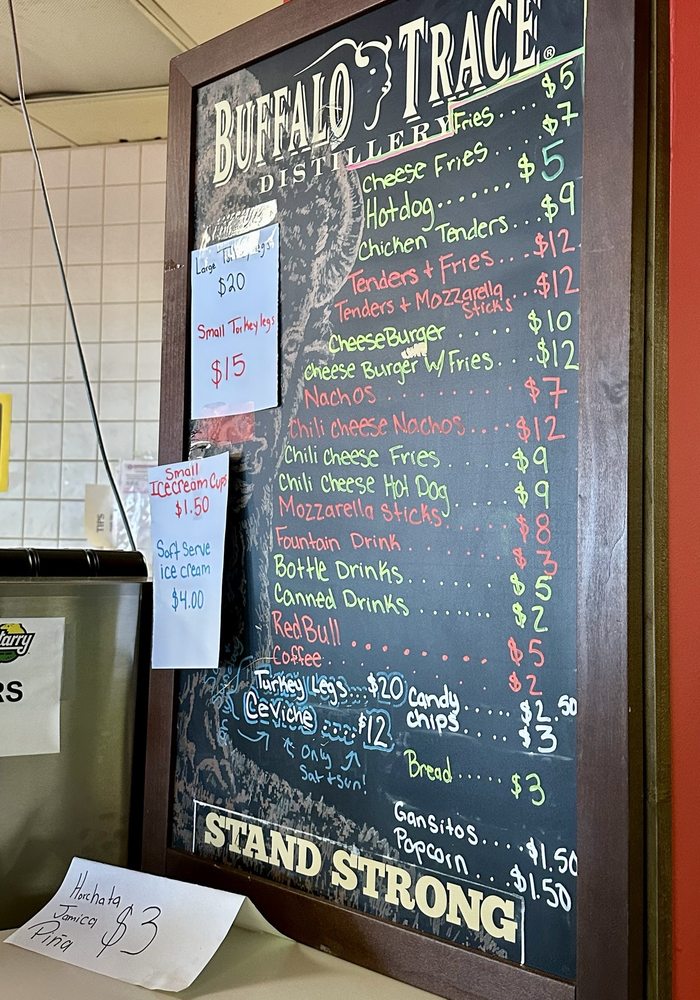 BUFFALO TRACE®
DISTILLERY
Fries .... $5
Cheese Fries $7
Hotdog....... $5
Chicken Tenders $9
Tenders + Fries... $12
Tenders + Mozzarella Sticks ... $12
CheeseBurger .... $10
Cheese Burger W/Fries... $12
Nachos ........ $7
Chili cheese Nachos.... $12
Chili cheese Fries .... $9
Chili cheese Hot Dog $9
Mozzarella Sticks..... $8
Fountain Drink ...... $3
Bottle Drinks....... $5
Canned Drinks ...... $2
RedBull ........ $5
Coffee ........ $2
Turkey Legs... $20
Ceviche ..... $12
Only
Sat+Sun!
Candy ..... $2.50
Chips ..... $3
Bread..... $3
Gansitos.... $1.50
Popcorn.... $1.50
STAND STRONG
Large Turkey legs
$20
Small Turkey legs
$15
Small
Icecream Cups
$1.50
Soft Serve
ice cream
$4.00
TIPS
RS
Horchata
Jamica
Piña
$3